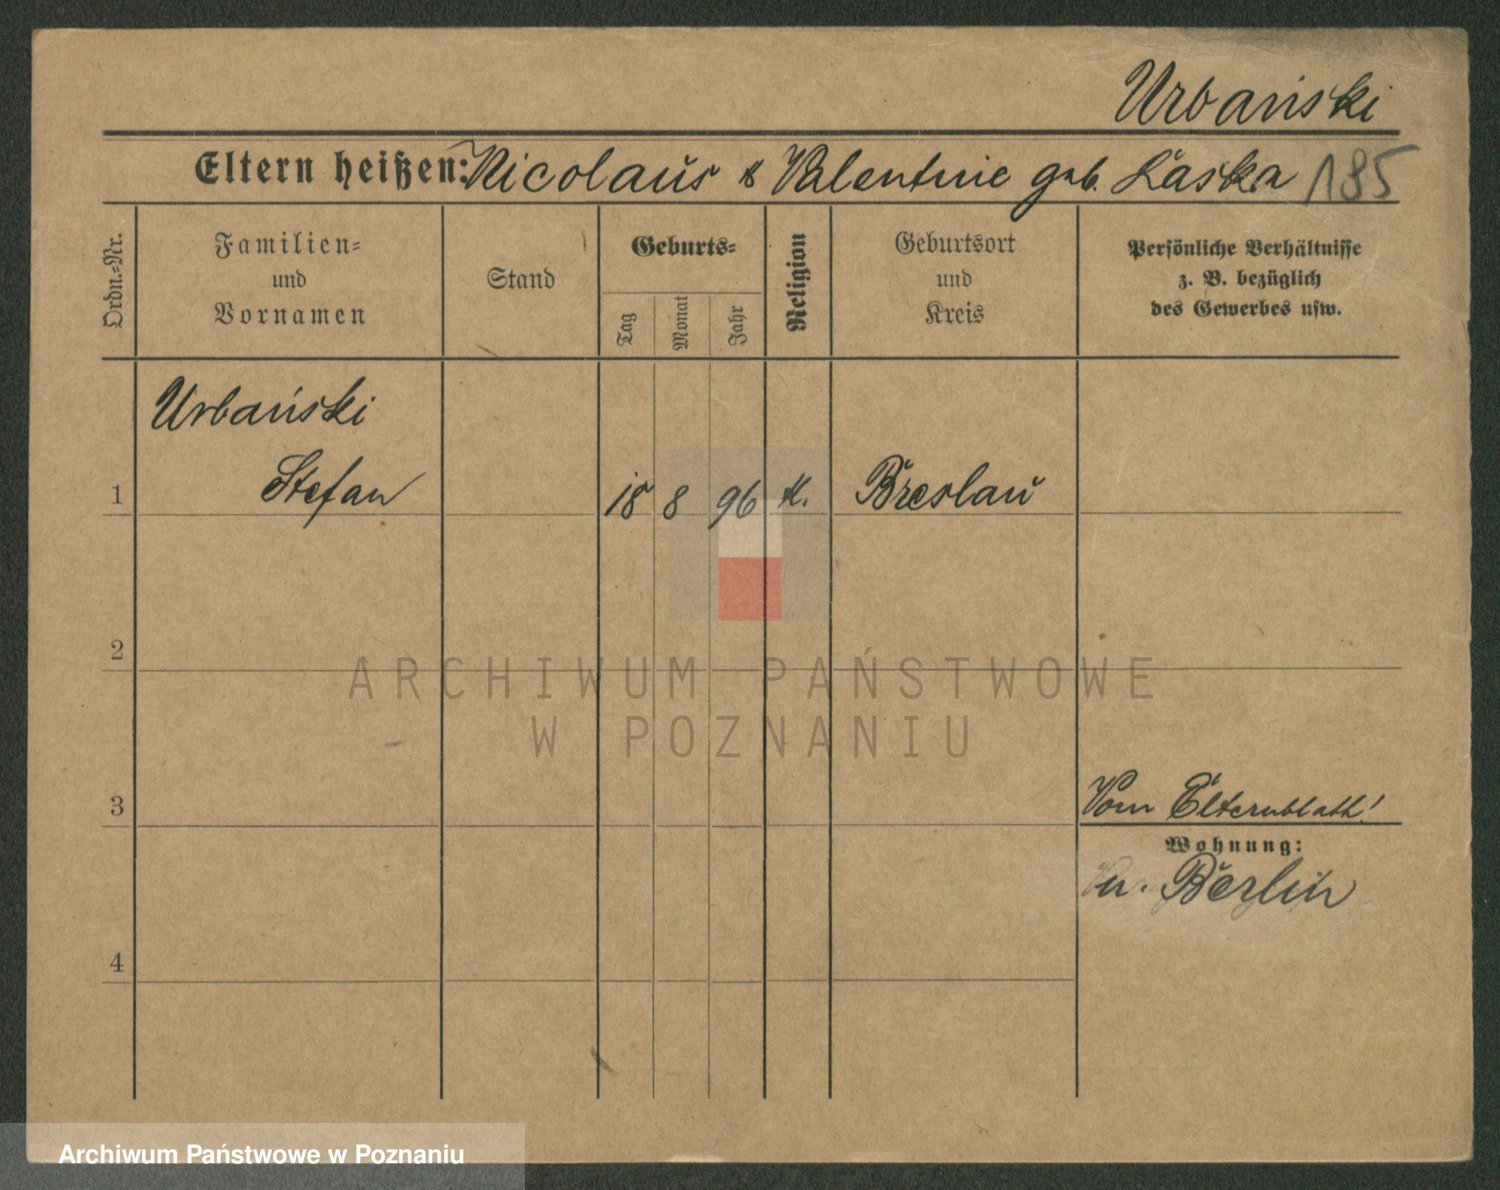 Urbański
Eltern heißen: Nicolaus & Valentine geb. Łaska 185
Ordn.=Nr.
Familien=
und
Vornamen
Stand
Geburts=
Tag
Monat
Jahr
Religion
Geburtsort
und
Kreis
Persönliche Verhältnisse
z. B. bezüglich
des Gewerbes usw.
Urbański
1 Stefan 18 8 96 k. Breslau
2
ARCHIWUM PAŃSTWOWE
W POZNANIU
3 Vom Elternblatt!
Wohnung:
n. Berlin
4
Archiwum Państwowe w Poznaniu